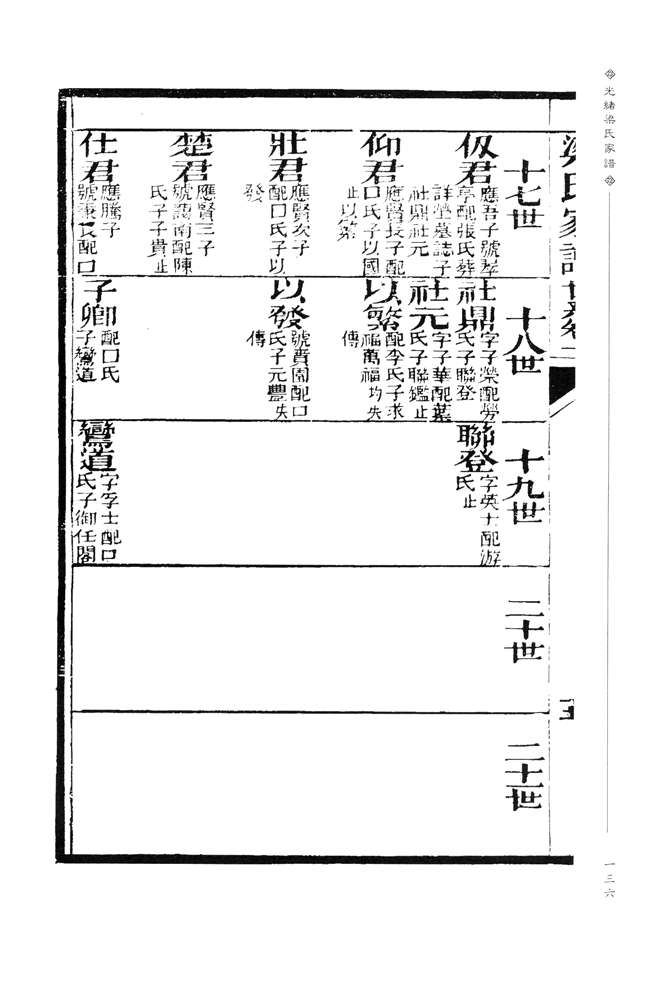 光緒梁氏家譜
一三六
梁氏家譜
十七世
伋君
應吾子號孝
亭配張氏葬
詳塋墓誌子
社鼎社元
仰君
應賢長子配
口氏子以國
止以繁
壯君
應賢次子
配口氏子以
發
楚君
應賢三子
南配陳
氏子子貴止
仕君
應騰子
配口
十八世
社鼎
字子榮配勞
氏子聯登
社元
字子華配葉
氏子聯鑑止
以繁
配李氏子求
福萬福均失
傳
以發
號賁園配口
氏子元豐失
傳
子卿
配口氏
子鸞道
十九世
聯登
字英士配游
氏止
鸞道
字孚士配口
氏子御任閣
二十世
二十一世